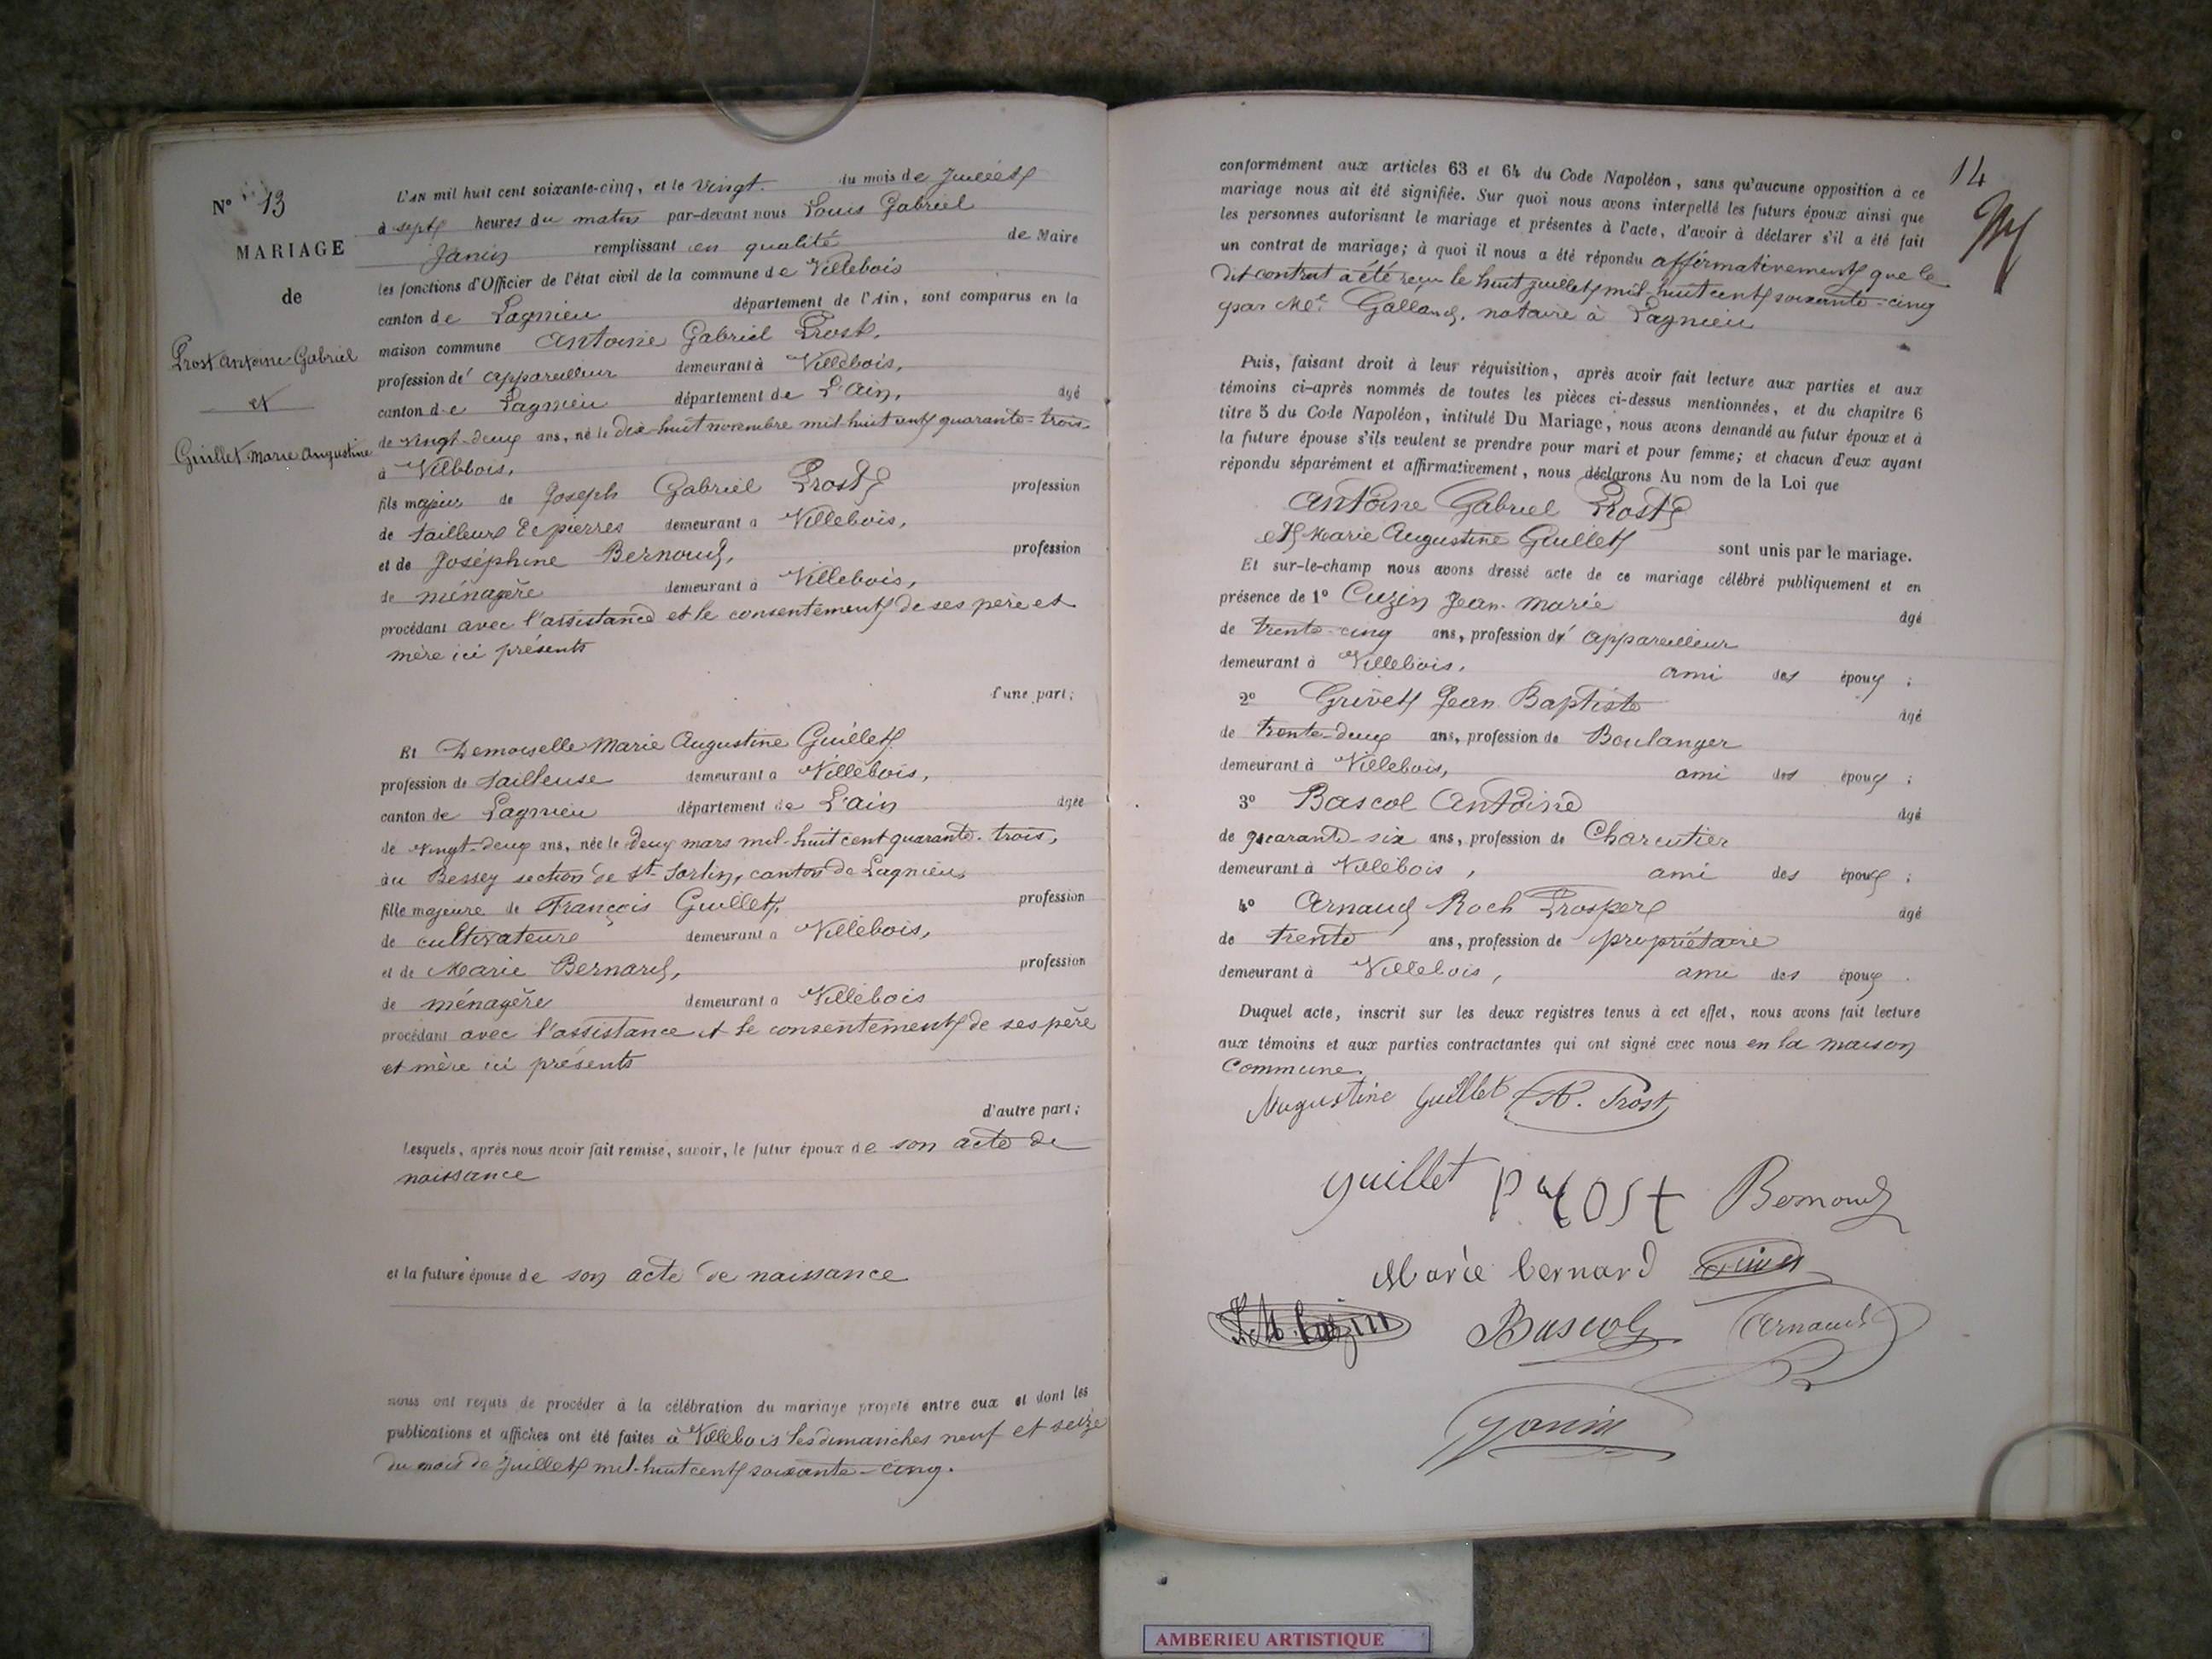 N° 13
MARIAGE
de
Prost Antoine Gabriel
et
Guillet Marie Augustine
L'AN mil huit cent soixante-cinq, et le vingt du mois de Juillet
à sept heures du matin par-devant nous Louis Gabriel
Janin remplissant en qualité de Maire
les fonctions d'Officier de l'état civil de la commune de Villebois
canton de Lagnieu département de l'Ain, sont comparus en la
maison commune Antoine Gabriel Prost,
profession d' appareilleur demeurant à Villebois,
canton de Lagnieu département de L'Ain, âgé
de vingt-deux ans, né le dix-huit novembre mil-huit cent quarante-trois
à Villebois,
fils majeur de Joseph Gabriel Prost profession
de tailleur de pierres demeurant à Villebois,
et de Joséphine Bernoud, profession
de ménagère demeurant à Villebois,
procédant avec l'assistance et le consentement de ses père et
mère ici présents
d'une part;
Et Demoiselle Marie Augustine Guillet
profession de tailleuse demeurant à Villebois,
canton de Lagnieu département de L'ain âgée
de vingt-deux ans, née le deux mars mil-huit cent quarante-trois,
au Bessey section de St Sorlin, canton de Lagnieu,
fille majeure de François Guillet, profession
de cultivateur demeurant à Villebois,
et de Marie Bernard, profession
de ménagère demeurant à Villebois
procédant avec l'assistance et le consentement de ses père
et mère ici présents
d'autre part;
Lesquels, après nous avoir fait remise, savoir, le futur époux de son acte de
naissance
et la future épouse de son acte de naissance
nous ont requis de procéder à la célébration du mariage projeté entre eux et dont les
publications et affiches ont été faites à Villebois les dimanches neuf et seize
du mois de Juillet mil-huit cent soixante-cinq.
14
conformément aux articles 63 et 64 du Code Napoléon, sans qu'aucune opposition à ce
mariage nous ait été signifiée. Sur quoi nous avons interpellé les futurs époux ainsi que
les personnes autorisant le mariage et présentes à l'acte, d'avoir à déclarer s'il a été fait
un contrat de mariage; à quoi il nous a été répondu affirmativement que le
dit contrat a été reçu le huit juillet mil-huit cent soixante-cinq
par Me. Galland, notaire à Lagnieu
Puis, faisant droit à leur réquisition, après avoir fait lecture aux parties et aux
témoins ci-après nommés de toutes les pièces ci-dessus mentionnées, et du chapitre 6
titre 5 du Code Napoléon, intitulé Du Mariage, nous avons demandé au futur époux et à
la future épouse s'ils veulent se prendre pour mari et pour femme; et chacun d'eux ayant
répondu séparément et affirmativement, nous déclarons Au nom de la Loi que
Antoine Gabriel Prost
et Marie Augustine Guillet sont unis par le mariage.
Et sur-le-champ nous avons dressé acte de ce mariage célébré publiquement et en
présence de 1° Cuzin Jean-Marie âgé
de trente-cinq ans, profession d' appareilleur
demeurant à Villebois, ami des époux ;
2° Grivet Jean Baptiste âgé
de trente-deux ans, profession de Boulanger
demeurant à Villebois, ami des époux ;
3° Bascol Antoine âgé
de quarante-six ans, profession de Charcutier
demeurant à Villebois , ami des époux ;
4° Arnaud Roch Prosper âgé
de trente ans, profession de propriétaire
demeurant à Villebois, ami des époux .
Duquel acte, inscrit sur les deux registres tenus à cet effet, nous avons fait lecture
aux témoins et aux parties contractantes qui ont signé avec nous en la maison
commune.
Augustine Guillet A. Prost
guillet prost Bernoud
Marie bernard
J.M. Cuzin Bascol Arnaud
Janin
AMBERIEU ARTISTIQUE